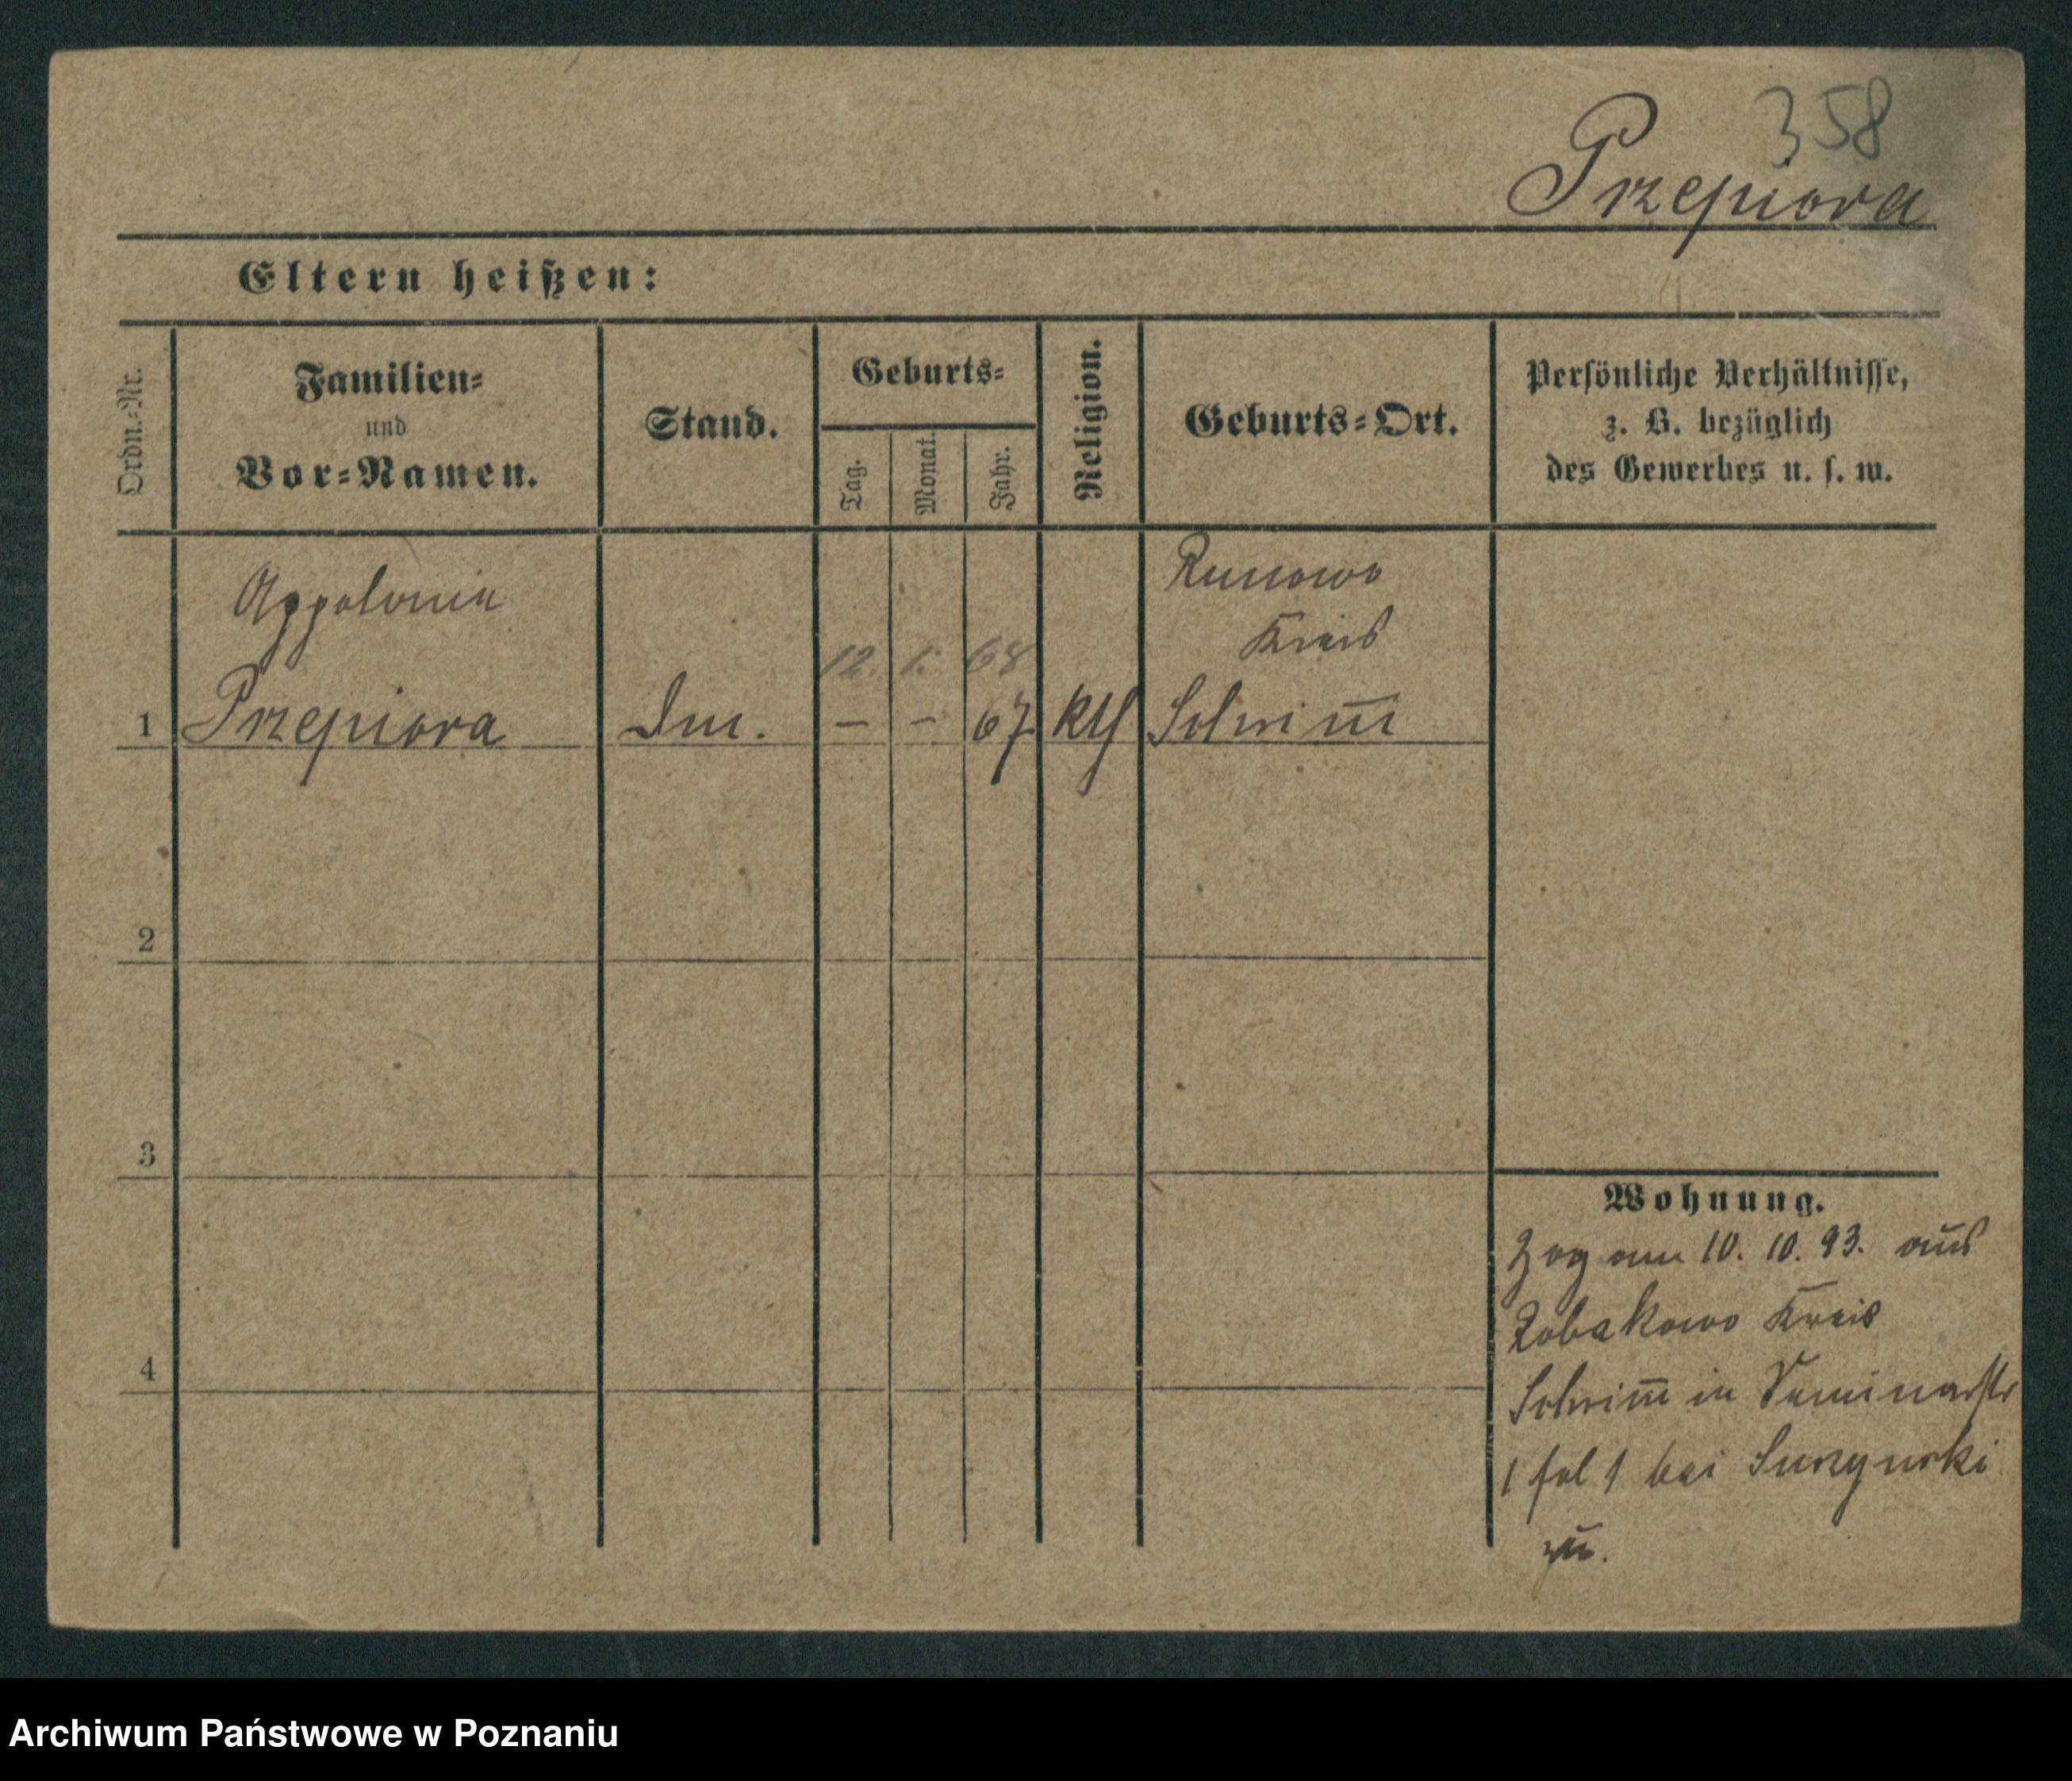 358
Przepiora
Eltern heißen:
Ordn.-Nr.
Familien-
und
Vor-Namen.
Stand.
Geburts-
Tag.
Monat.
Jahr.
Religion.
Geburts-Ort.
Persönliche Verhältnisse,
z. B. bezüglich
des Gewerbes u. s. w.
Appolonia
Runowo
Kreis
12. 1. 68
1 Przepiora — — 67 kth Schrim̅
2
3
4
Wohnung.
Zog am 10. 10. 93. aus
Kreis
Schrim̅ in Seminarstr
1 bei
zu.
Archiwum Państwowe w Poznaniu